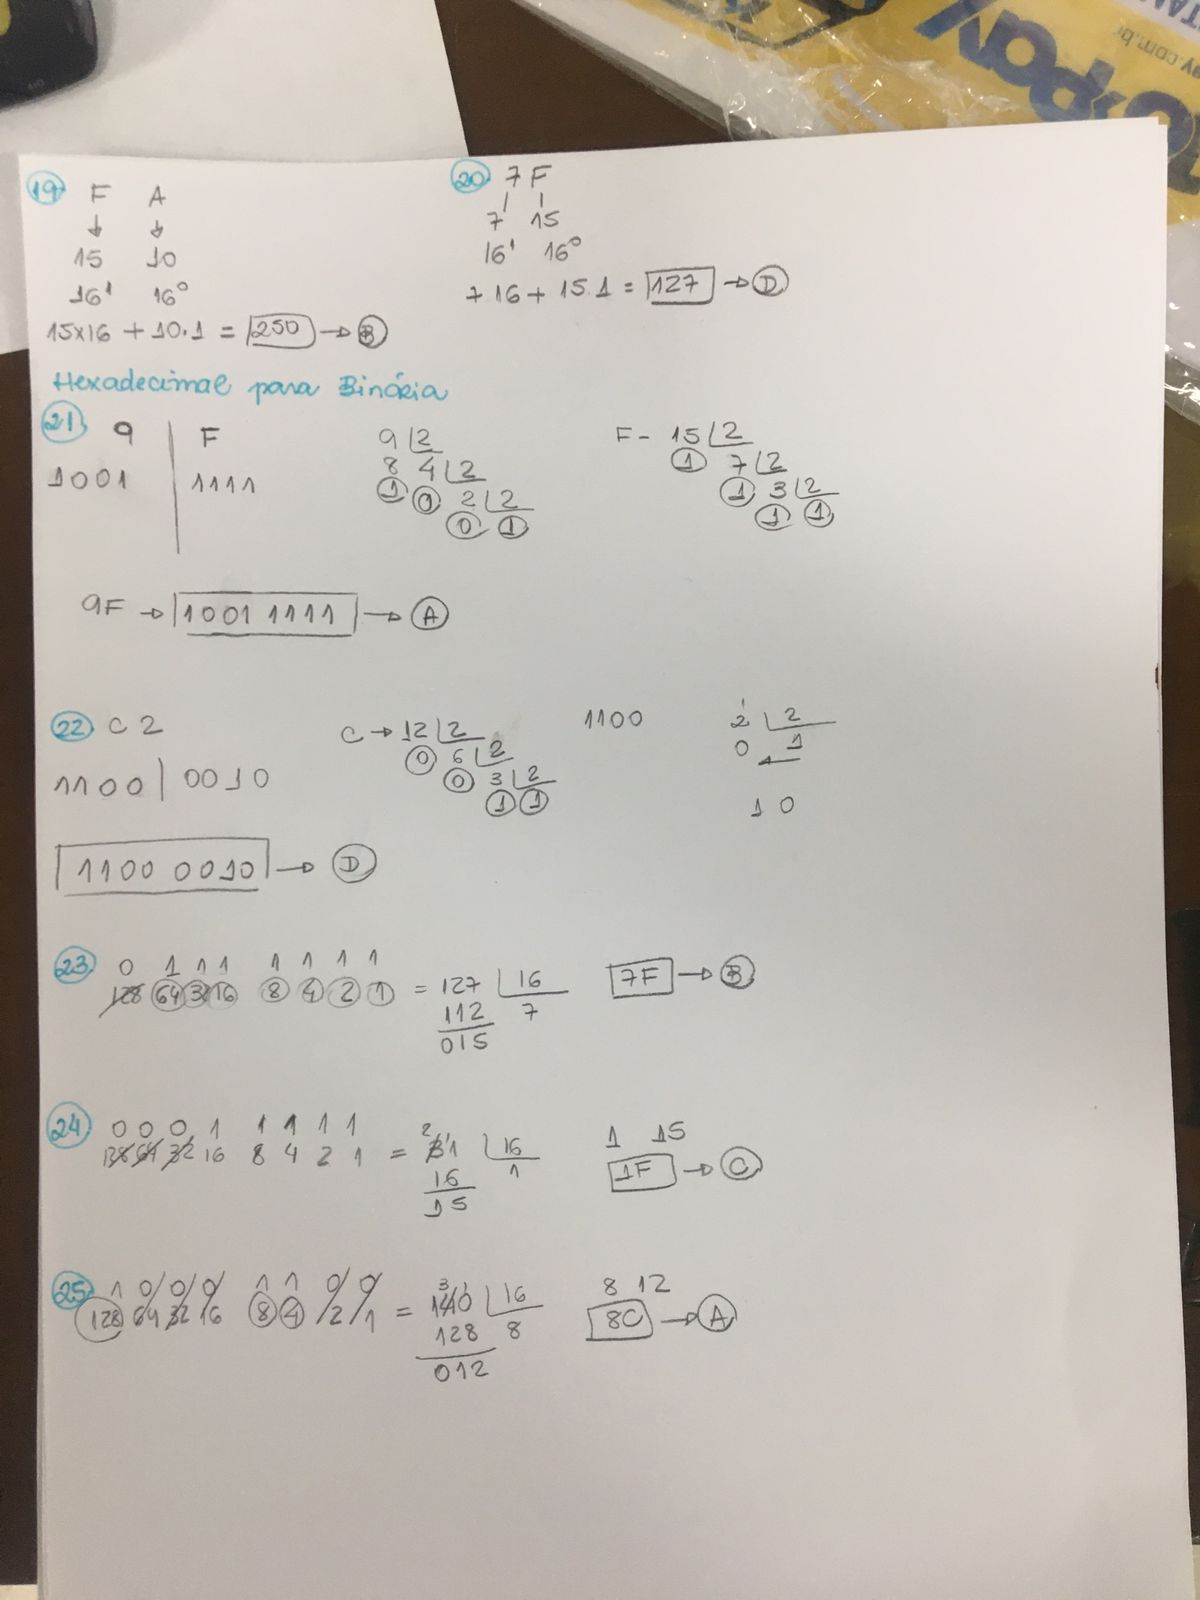 19 F A
15 10
16¹ 16⁰
15x16 + 10.1 = 250 → B
20 7F
7 15
16¹ 16⁰
7.16 + 15.1 = 127 → D
Hexadecimal para Binária
21 9 | F
1001 | 1111
9 2
8 4 2
1 0 2 2
0 1
F - 15 2
1 7 2
1 3 2
1 1
9F → 1001 1111 → A
22 C2
1100 | 0010
C → 12 2
0 6 2
0 3 2
1 1
1100
2 2
0 1
1 0
1100 0010 → D
23 0 1 1 1 1 1 1 1
128 64 32 16 8 4 2 1 = 127 16
112 7
015
7F → B
24 0 0 0 1 1 1 1 1
128 64 32 16 8 4 2 1 = 31 16
16 1
15
1 15
1F → C
25 1 0 0 0 1 1 0 0
128 64 32 16 8 4 2 1 = 140 16
128 8
012
8 12
8C → A
pay
ay.com.br